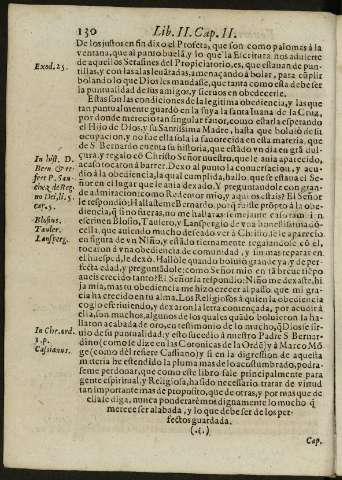 130 Lib. II. Cap. II.
De los justos en fin dixo el Profeta, que son como palomas à la
ventana, que al punto buelã, y lo que la Escritura nos aduierte
de aquellos Serafines del Propiciatorio, es, que estauan de pun-
Exod. 25.
tillas, y con las alas leuãtadas, amenaçando à bolar, para cũplir
bolando lo que Dios les mandasse, que tanta como esta debe ser
la puntualidad de sus amigos, y sieruos en obedecerle.
Estas son las condiciones de la legitima obediencia, y las que
tan puntualmente guardò en la suya la santa Iuana de la Cruz,
por donde mereciò tan singular fauor, como estarla esperando
el Hijo de Dios, y su Santissima Madre, hasta que boluiò de su
ocupacion, y no fue ella sola la fauorecida en esta materia, que
de S. Bernardo cuenta su historia, que estãdo vn dia en grã dul-
çura y regalo cõ Christo Señor nuestro, que le auia aparecido,
In hist. D.
Bern.
acaso tocaron à barrer. Dexò al punto la conuersacion, y acu-
diò à la obediencia, la qual cumplida, boluio, que estaua el Se-
ñor en el lugar que le auia dexado. Y preguntandole con gran-
de admiracion: como Rey mio, y aqui os estais? El Señor
no Dei, li. 5.
cap. 5.
le respondiò; Hallasteme Bernardo, porq̃ fuiste prõpto à la obe-
diencia,
Blosius.
Tauler.
Lansperg.
y Lanspergio de vna
ella, que auiendo mucho deseado ver à Christo, se le apareciò
en figura de vn Niño, y estãdo tiernamente regalandose cõ el,
tocaron à vna obediencia de comunidad, y sin mas reparar en
el huesped, le dexò. Hallòle quando boluiò grande, y de per-
fecta edad, y preguntãdole; como Señor mio en tã breue tiẽpo
aueis crecido tanto? El Señor la respondiò: Niño me dexaste, hi-
ja mia, mas tu obediencia me hizo crecer al passo que mi gra-
cia ha crecido en tu alma. Los Religiosos à quien la obediencia
cogiò escriuiendo, y dexaron la letra començada, por acudir à
ella, son muchos, algunos de los quales quãdo boluieron la ha-
llaron acabada de oro, en testimonio de lo mucho, q̃ Dios se sir-
In Chr. ord.
3. p.
uio de su puntualidad, y esto sucediò à nuestro Padre S. Bernar-
dino (como se dize en las Coronicas de la Ordẽ) y à Marco Mõ-
Casianus.
ge (como dẽl refiere Cassiano) y si en la digression de aquesta
materia he estendido la pluma mas de lo acostumbrado, podra-
seme perdonar, que como este libro sale principalmente para
gente espiritual, y Religiosa, ha sido necessario tratar de virtud
tan importante mas de proposito, que de otras, y por mas que de
ella se diga, nunca ponderarẽmos dignamente lo mucho q̃
merece ser alabada, y lo que debe ser de los per-
fectos guardada.
(.§.)
Cap.